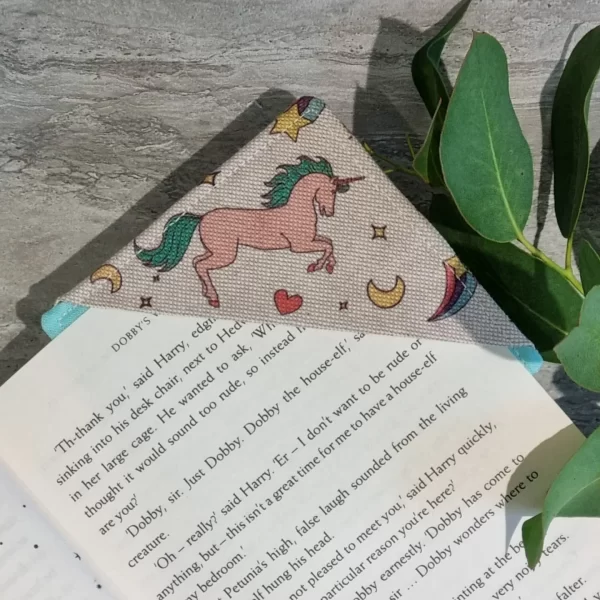 DOBBY'S
'Th-thank you,' said Harry, edgi
sinking into his desk chair, next to Hed
in her large cage. He wanted to ask, 'W
thought it would sound too rude, so instead
are you?'
'Dobby, sir. Just Dobby. Dobby the house-elf,' sa
creature.
'Oh – really?' said Harry. 'Er – I don't want to be rude or
anything, but – this isn't a great time for me to have a house-elf
my bedroom.'
Petunia's high, false laugh sounded from the living
elf hung his head.
not pleased to meet you,' said Harry quickly,
particular reason you're here?'
bby earnestly. 'Dobby has come to
sir ... Dobby wonders where to
nting at the be
very no
ears.
falter.